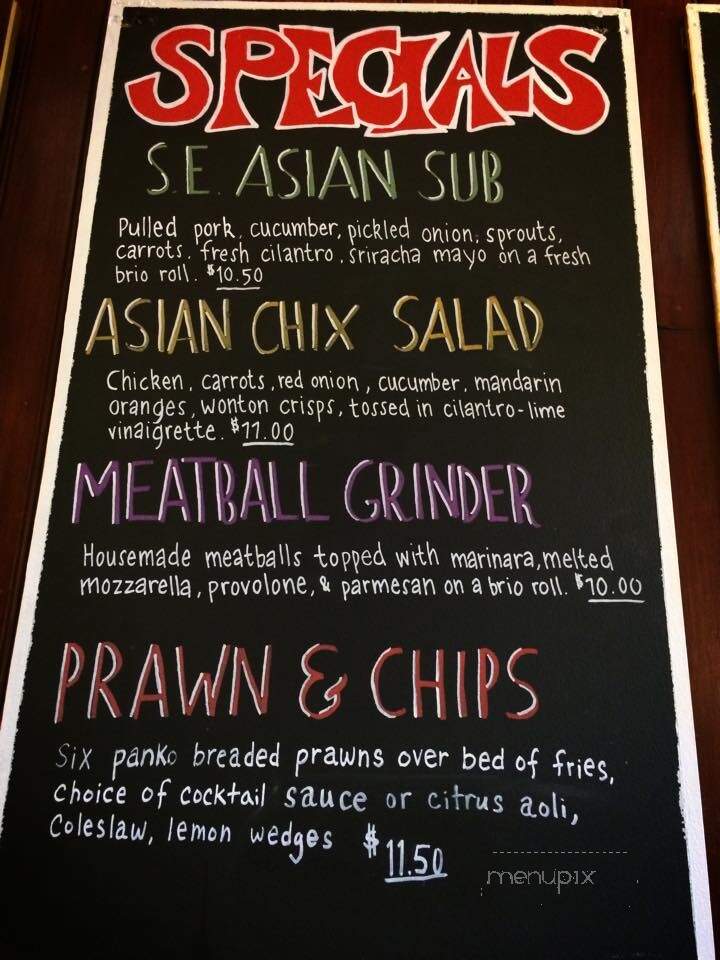 SPECIALS
S.E. ASIAN SUB
Pulled pork, cucumber, pickled onion, sprouts,
carrots, fresh cilantro, sriracha mayo on a fresh
brio roll. $10.50
ASIAN CHIX SALAD
Chicken, carrots, red onion, cucumber, mandarin
oranges, wonton crisps, tossed in cilantro-lime
vinaigrette. $11.00
MEATBALL GRINDER
Housemade meatballs topped with marinara, melted
mozzarella, provolone, & parmesan on a brio roll. $10.00
PRAWN & CHIPS
Six panko breaded prawns over bed of fries,
choice of cocktail sauce or citrus aoli,
Coleslaw, lemon wedges $11.50
menupix